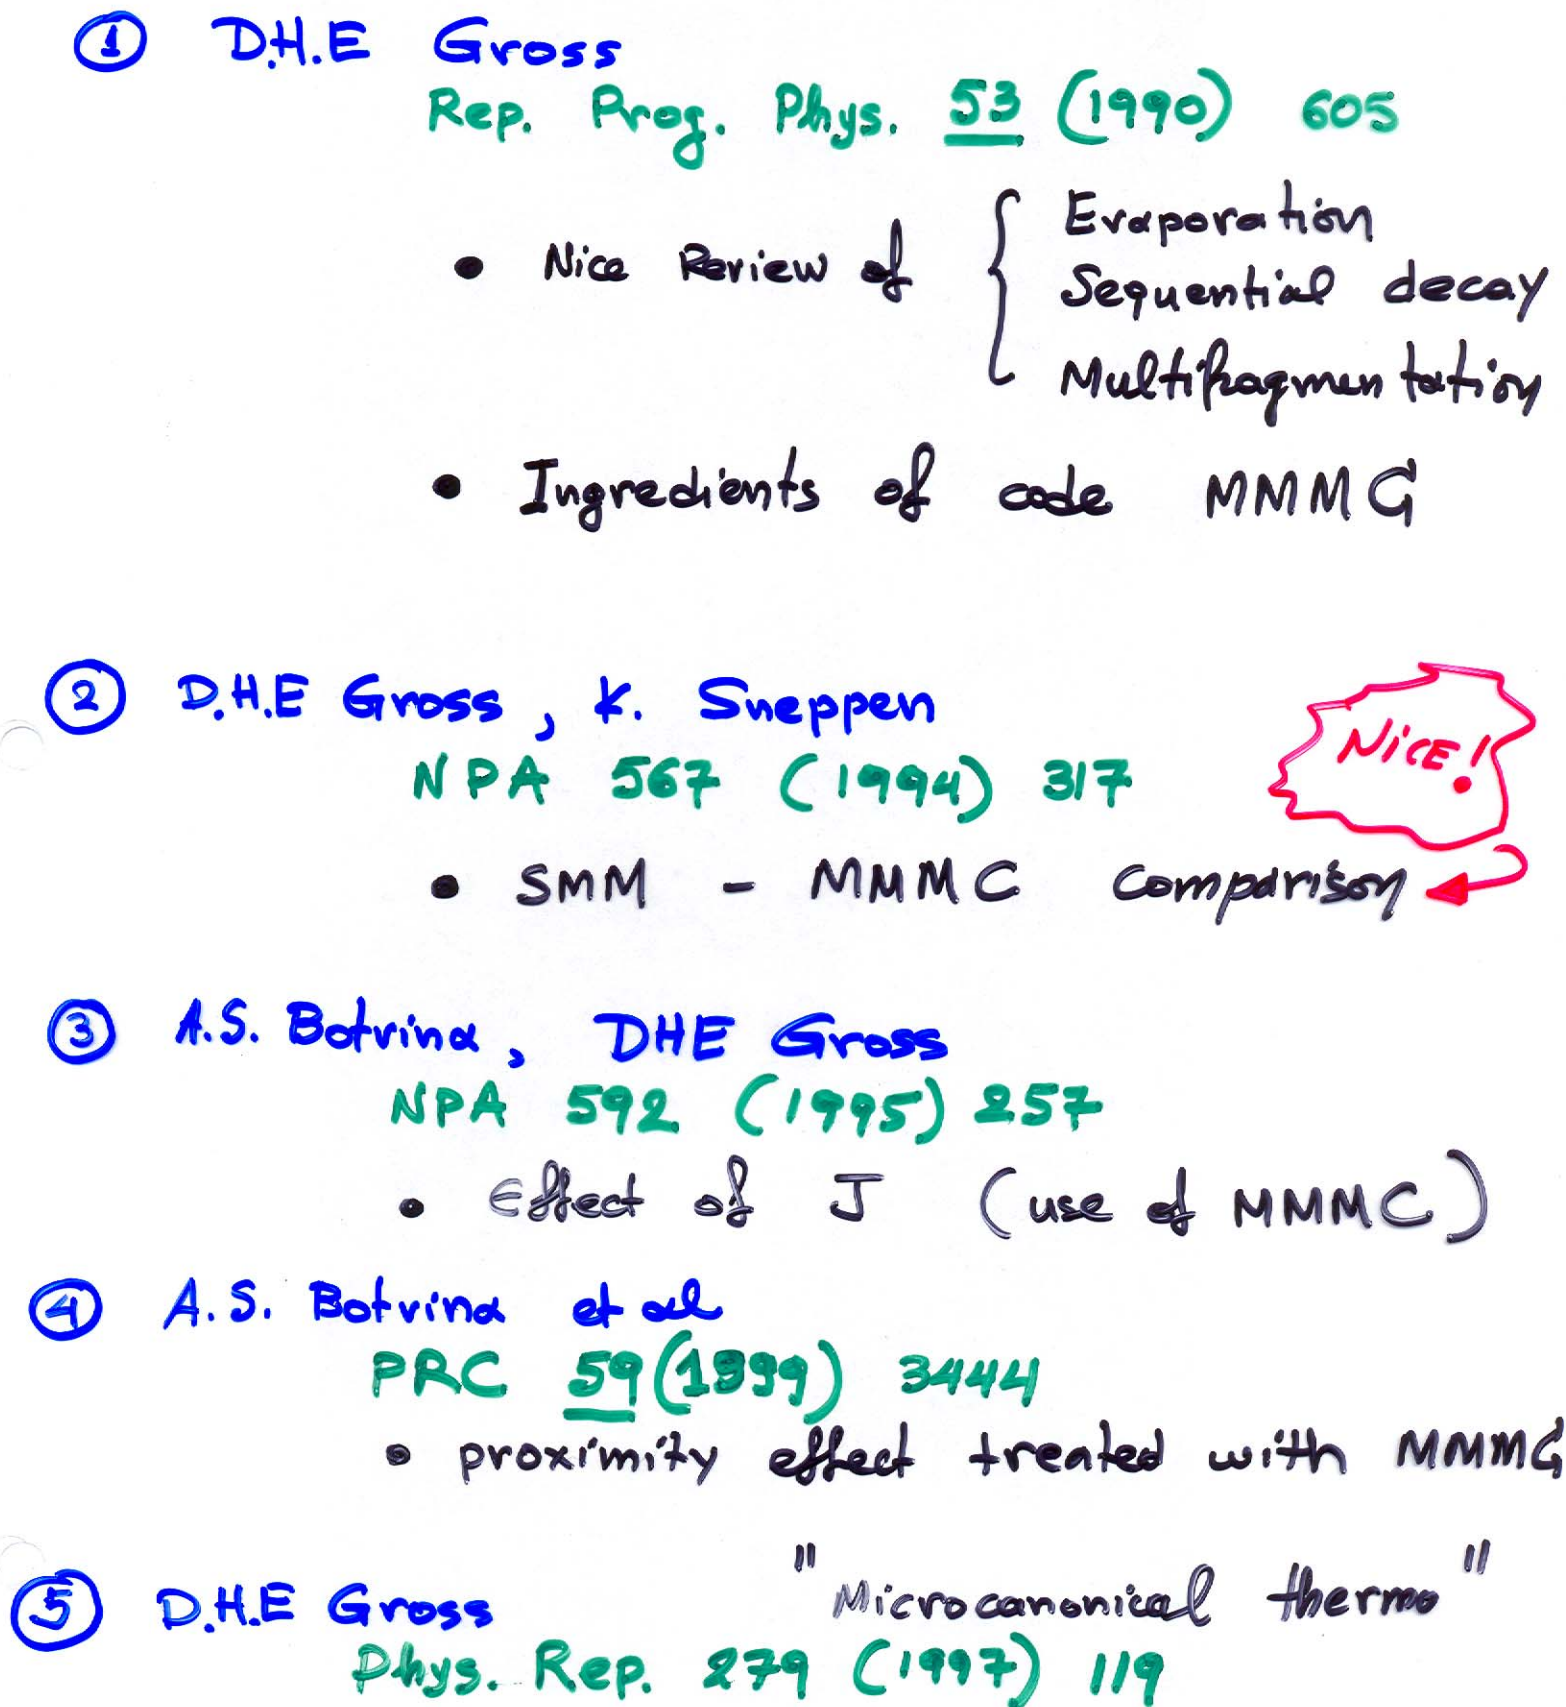 ① D.H.E Gross
Rep. Prog. Phys. 53 (1990) 605
• Nice Review of { Evaporation
Sequential decay
Multifragmentation
• Ingredients of code MMMC
② D.H.E Gross, K. Sneppen
NPA 567 (1994) 317
NICE!
• SMM - MMMC Comparison
③ A.S. Botvina, DHE Gross
NPA 592 (1995) 257
• Effect of J (use of MMMC)
④ A.S. Botvina et al
PRC 59 (1999) 3444
• proximity effect treated with MMMC
⑤ D.H.E Gross "Microcanonical thermo"
Phys. Rep. 279 (1997) 119